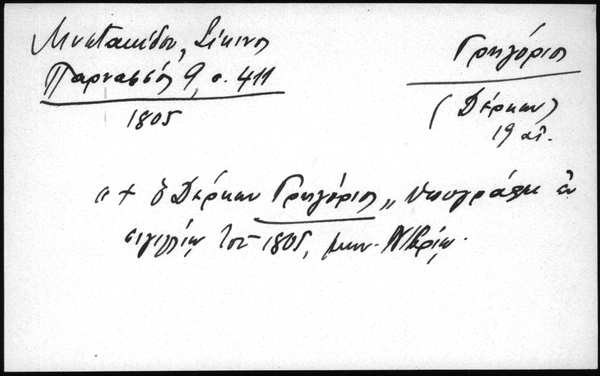 Μηλιαράκη, Σίκινος
Παρνασσός 9, σ. 411
1805
Γρηγόριος
(Δέρκων)
19 αἰ.
"+ ὁ Δέρκων Γρηγόριος" ὑπογράφει ἐν
σιγιλλίῳ τοῦ 1805, μην.